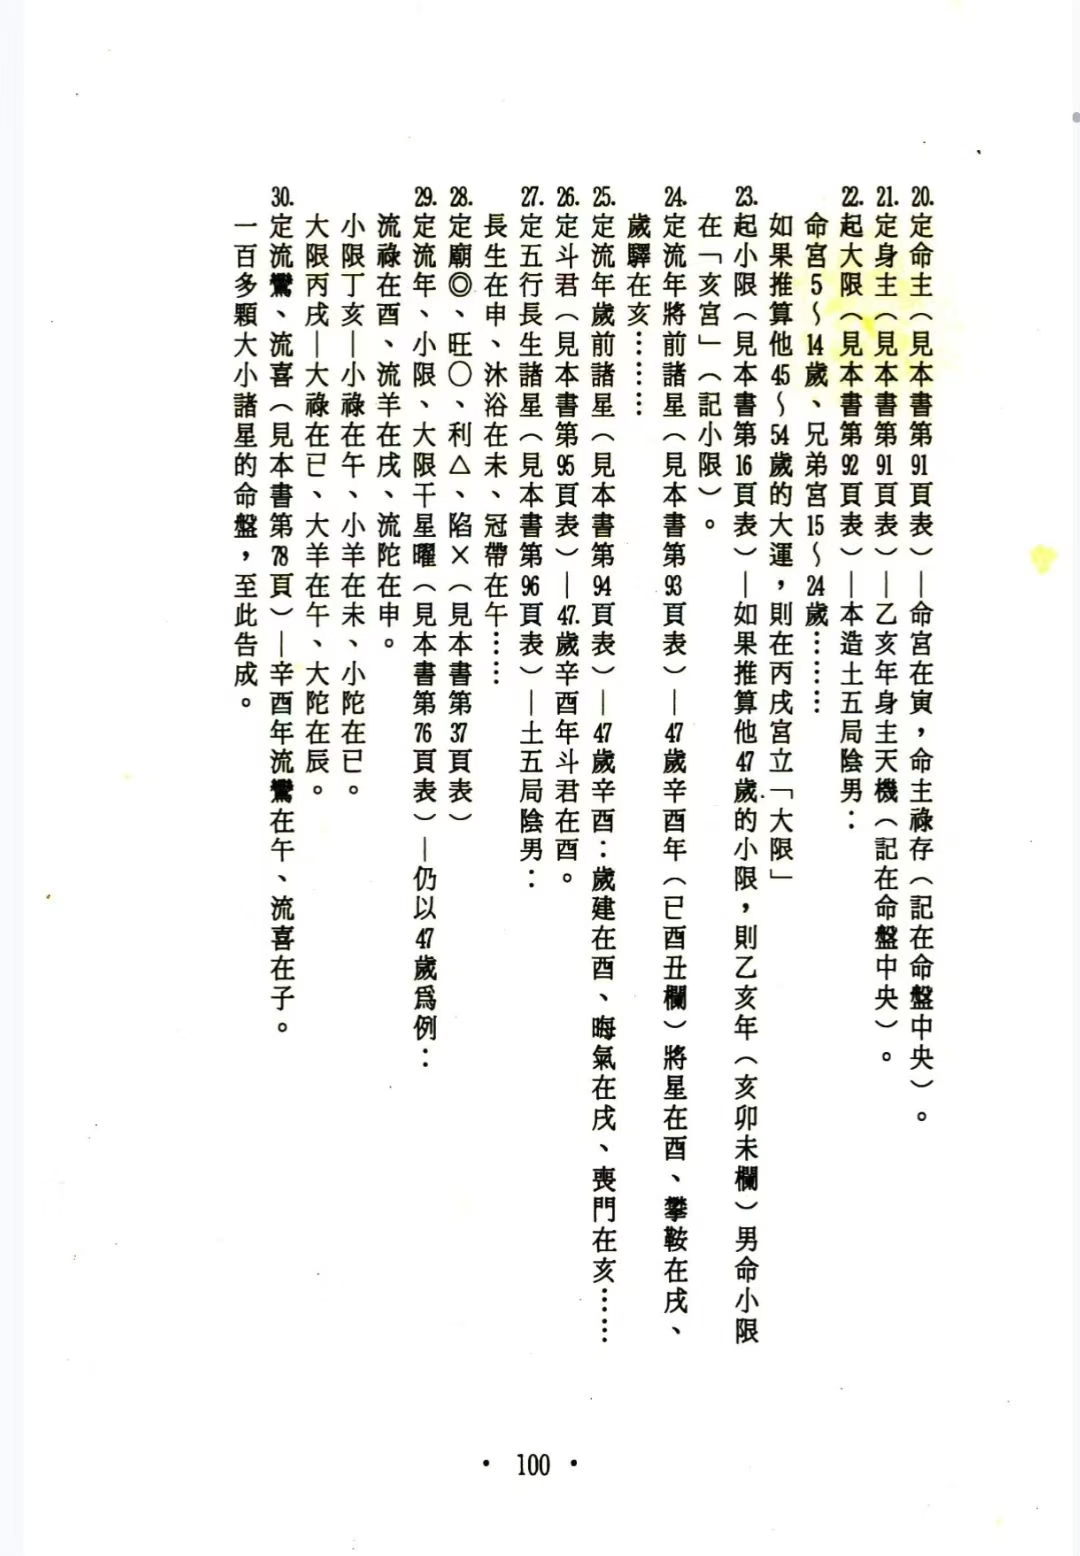 20.定命主（見本書第91頁表）—命宮在寅，命主祿存（記在命盤中央）。
21.定身主（見本書第91頁表）—乙亥年身主天機（記在命盤中央）。
22.起大限（見本書第92頁表）—本造土五局陰男：
命宮5～14歲、兄弟宮15～24歲………
如果推算他45～54歲的大運，則在丙戌宮立「大限」
23.起小限（見本書第16頁表）—如果推算他47歲的小限，則乙亥年（亥卯未欄）男命小限
在「亥宮」（記小限）。
24.定流年將前諸星（見本書第93頁表）—47歲辛酉年（巳酉丑欄）將星在酉、攀鞍在戌、
歲驛在亥………
25.定流年歲前諸星（見本書第94頁表）—47歲辛酉：歲建在酉、晦氣在戌、喪門在亥……
26.定斗君（見本書第95頁表）—47.歲辛酉年斗君在酉。
27.定五行長生諸星（見本書第96頁表）—土五局陰男：
長生在申、沐浴在未、冠帶在午……
28.定廟◎、旺〇、利△、陷×（見本書第37頁表）
29.定流年、小限、大限干星曜（見本書第76頁表）—仍以47歲爲例：
流祿在酉、流羊在戌、流陀在申。
小限丁亥—小祿在午、小羊在未、小陀在巳。
大限丙戌—大祿在巳、大羊在午、大陀在辰。
30.定流鸞、流喜（見本書第78頁）—辛酉年流鸞在午、流喜在子。
一百多顆大小諸星的命盤，至此告成。
• 100 •